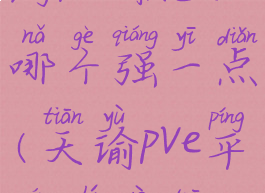 nǎ gè qiáng yī diǎn
哪个强一点
tiān yù píng
(天谕pve平